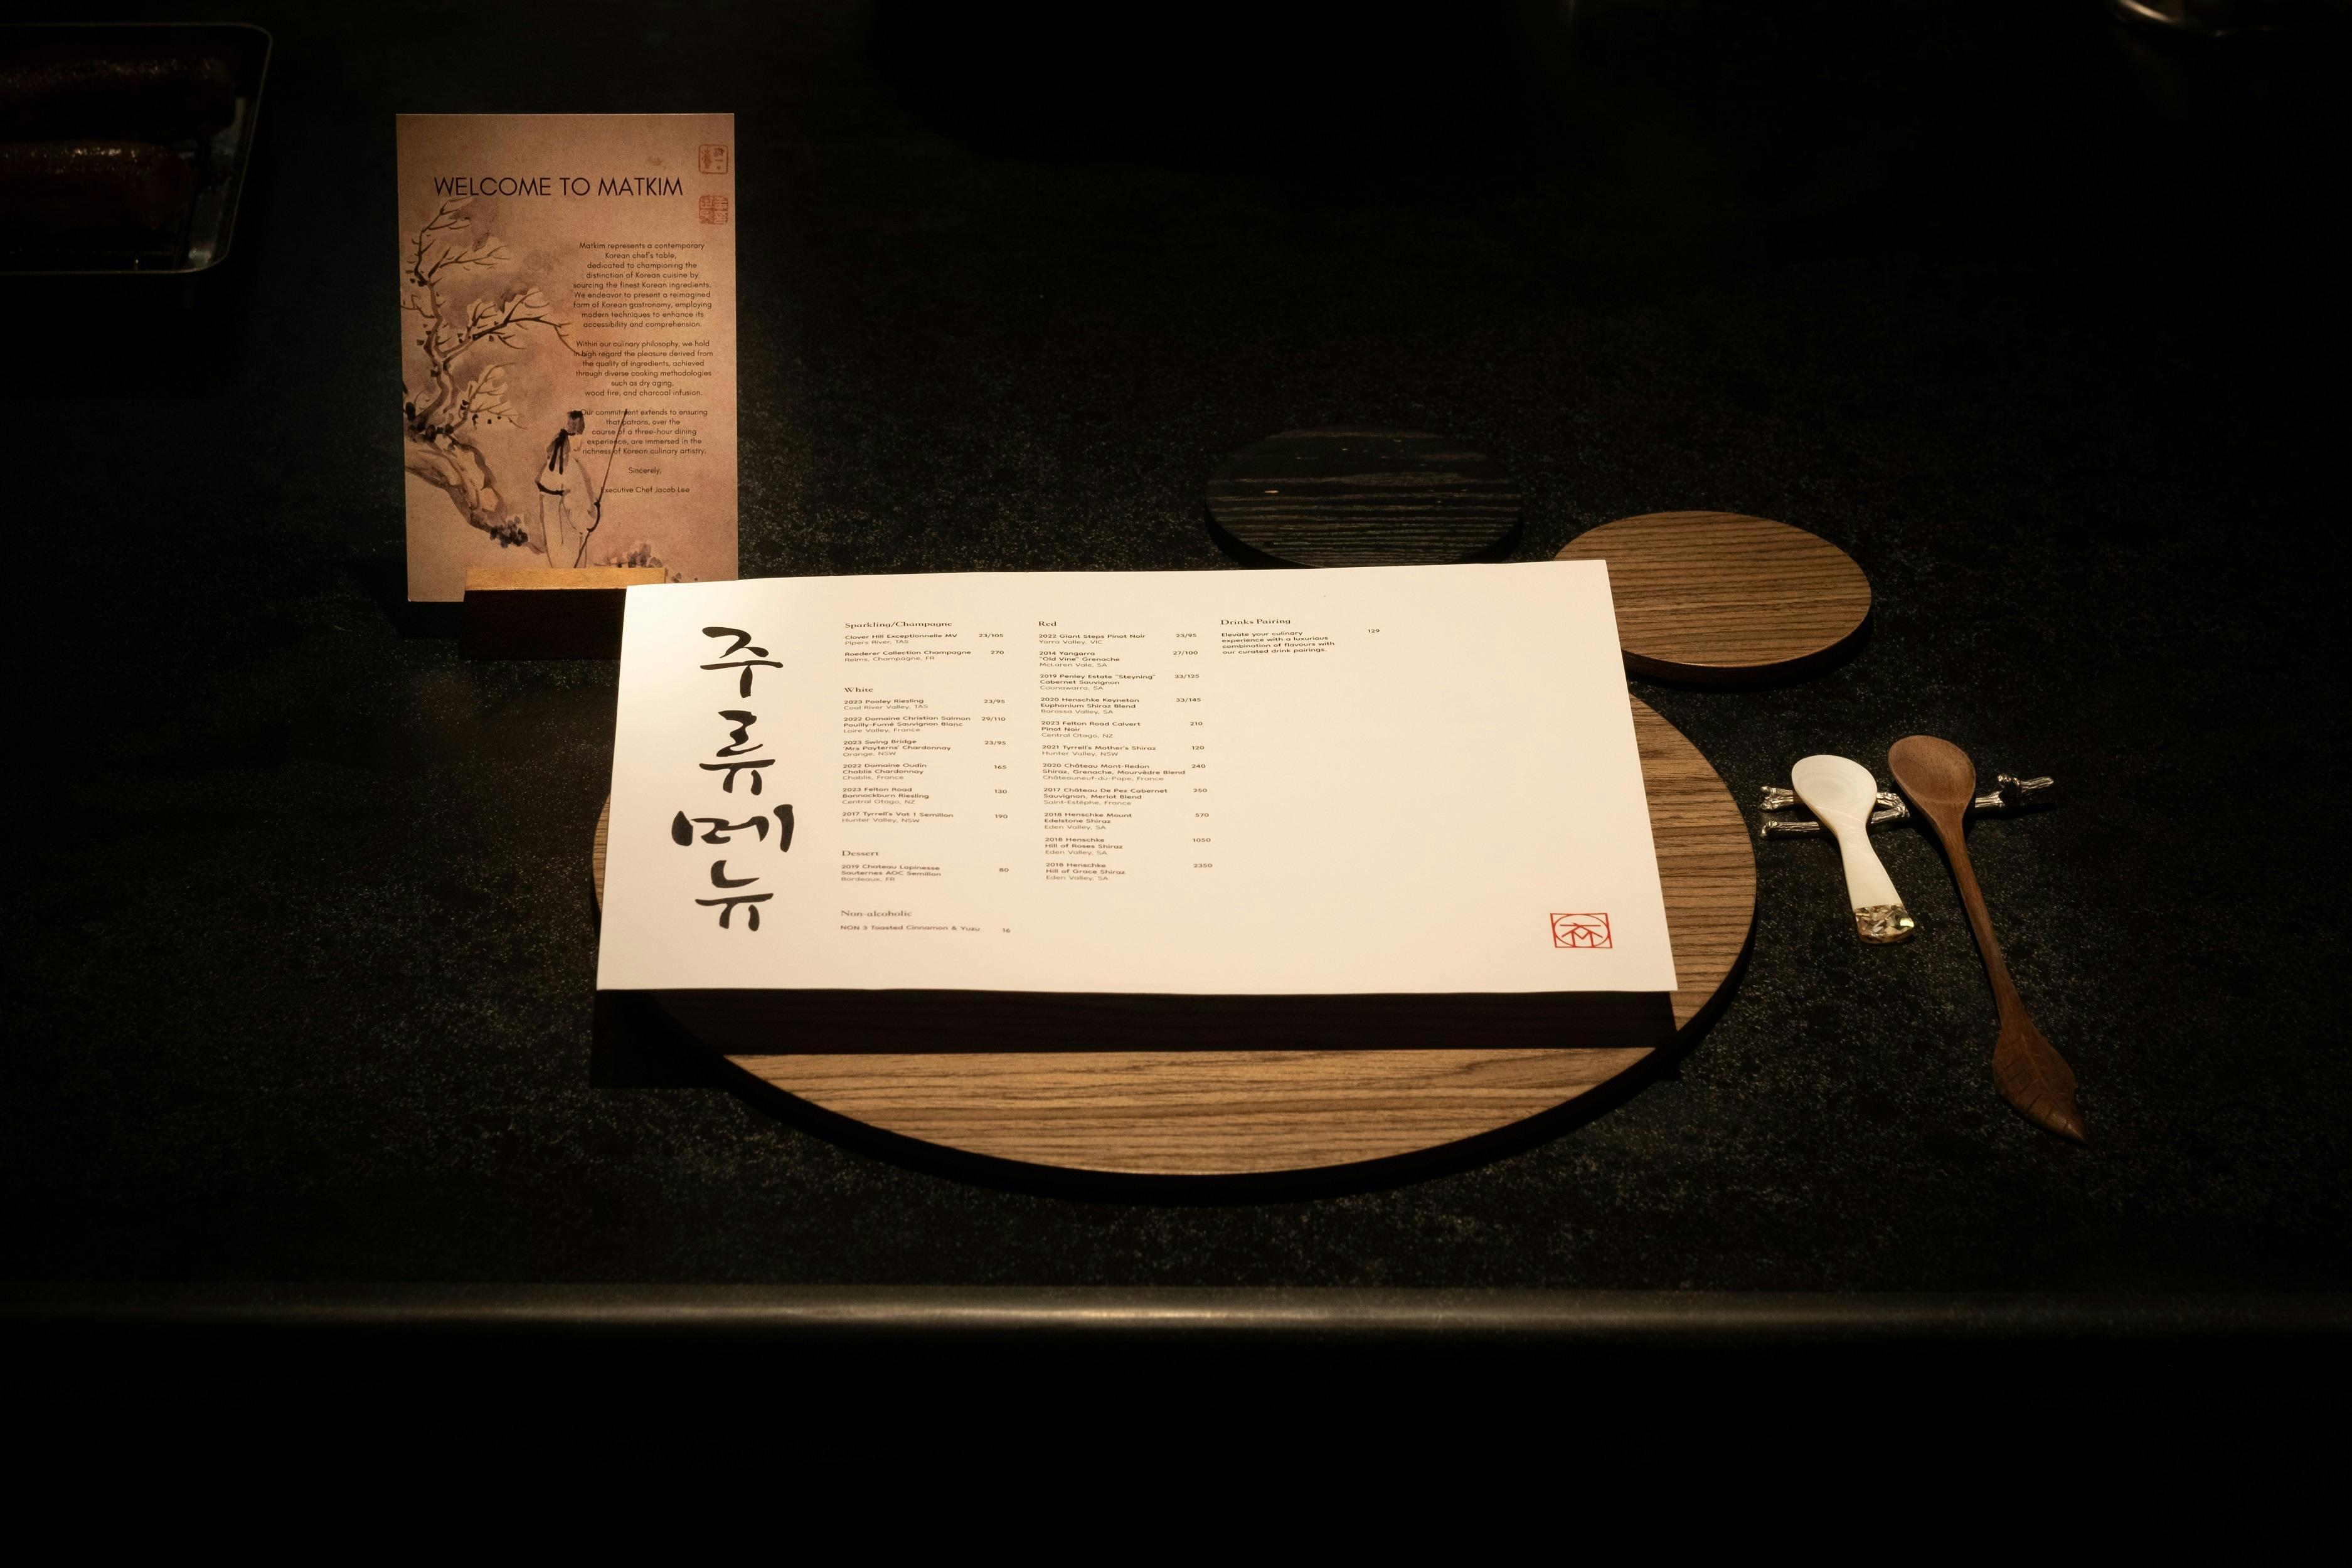 WELCOME TO MATKIM
Matkim represents a contemporary
Korean chef's table,
dedicated to championing the
distinction of Korean cuisine by
sourcing the finest Korean ingredients.
We endeavor to present a reimagined
form of Korean gastronomy, employing
modern techniques to enhance its
accessibility and comprehension.
Within our culinary philosophy, we hold
in high regard the pleasure derived from
the quality of ingredients, achieved
through diverse cooking methodologies
such as dry aging,
wood fire, and charcoal infusion.
Our commitment extends to ensuring
that patrons, over the
course of a three-hour dining
experience, are immersed in the
richness of Korean culinary artistry.
Sincerely,
Executive Chef Jacob Lee
주
류
메
뉴
Sparkling/Champagne
Clover Hill Exceptionnelle MV 23/105
Pipers River, TAS
Roederer Collection Champagne 270
Reims, Champagne, FR
White
2023 Pooley Riesling 23/95
Coal River Valley, TAS
2022 Domaine Christian Salmon 29/110
Pouilly-Fumé Sauvignon Blanc
Loire Valley, France
2023 Swing Bridge 23/95
'Mrs Payterns' Chardonnay
Orange, NSW
2022 Domaine Oudin 165
Chablis Chardonnay
Chablis, France
2023 Felton Road 130
Bannockburn Riesling
Central Otago, NZ
2017 Tyrrell's Vat 1 Semillon 190
Hunter Valley, NSW
Dessert
2019 Chateau Lapinesse 80
Sauternes AOC Semillon
Bordeaux, FR
Non-alcoholic
NON 3 Toasted Cinnamon & Yuzu 16
Red
2022 Giant Steps Pinot Noir 23/95
Yarra Valley, VIC
2014 Yangarra 27/100
"Old Vine" Grenache
McLaren Vale, SA
2019 Penley Estate "Steyning" 33/125
Cabernet Sauvignon
Coonawarra, SA
2020 Henschke Keyneton 33/145
Euphonium Shiraz Blend
Barossa Valley, SA
2023 Felton Road Calvert 210
Pinot Noir
Central Otago, NZ
2021 Tyrrell's Mother's Shiraz 120
Hunter Valley, NSW
2020 Château Mont-Redon 240
Shiraz, Grenache, Mourvèdre Blend
Châteauneuf-du-Pape, France
2017 Château De Pez Cabernet 250
Sauvignon, Merlot Blend
Saint-Estèphe, France
2018 Henschke Mount 570
Edelstone Shiraz
Eden Valley, SA
2018 Henschke 1050
Hill of Roses Shiraz
Eden Valley, SA
2018 Henschke 2350
Hill of Grace Shiraz
Eden Valley, SA
Drinks Pairing
Elevate your culinary 129
experience with a luxurious
combination of flavours with
our curated drink pairings.